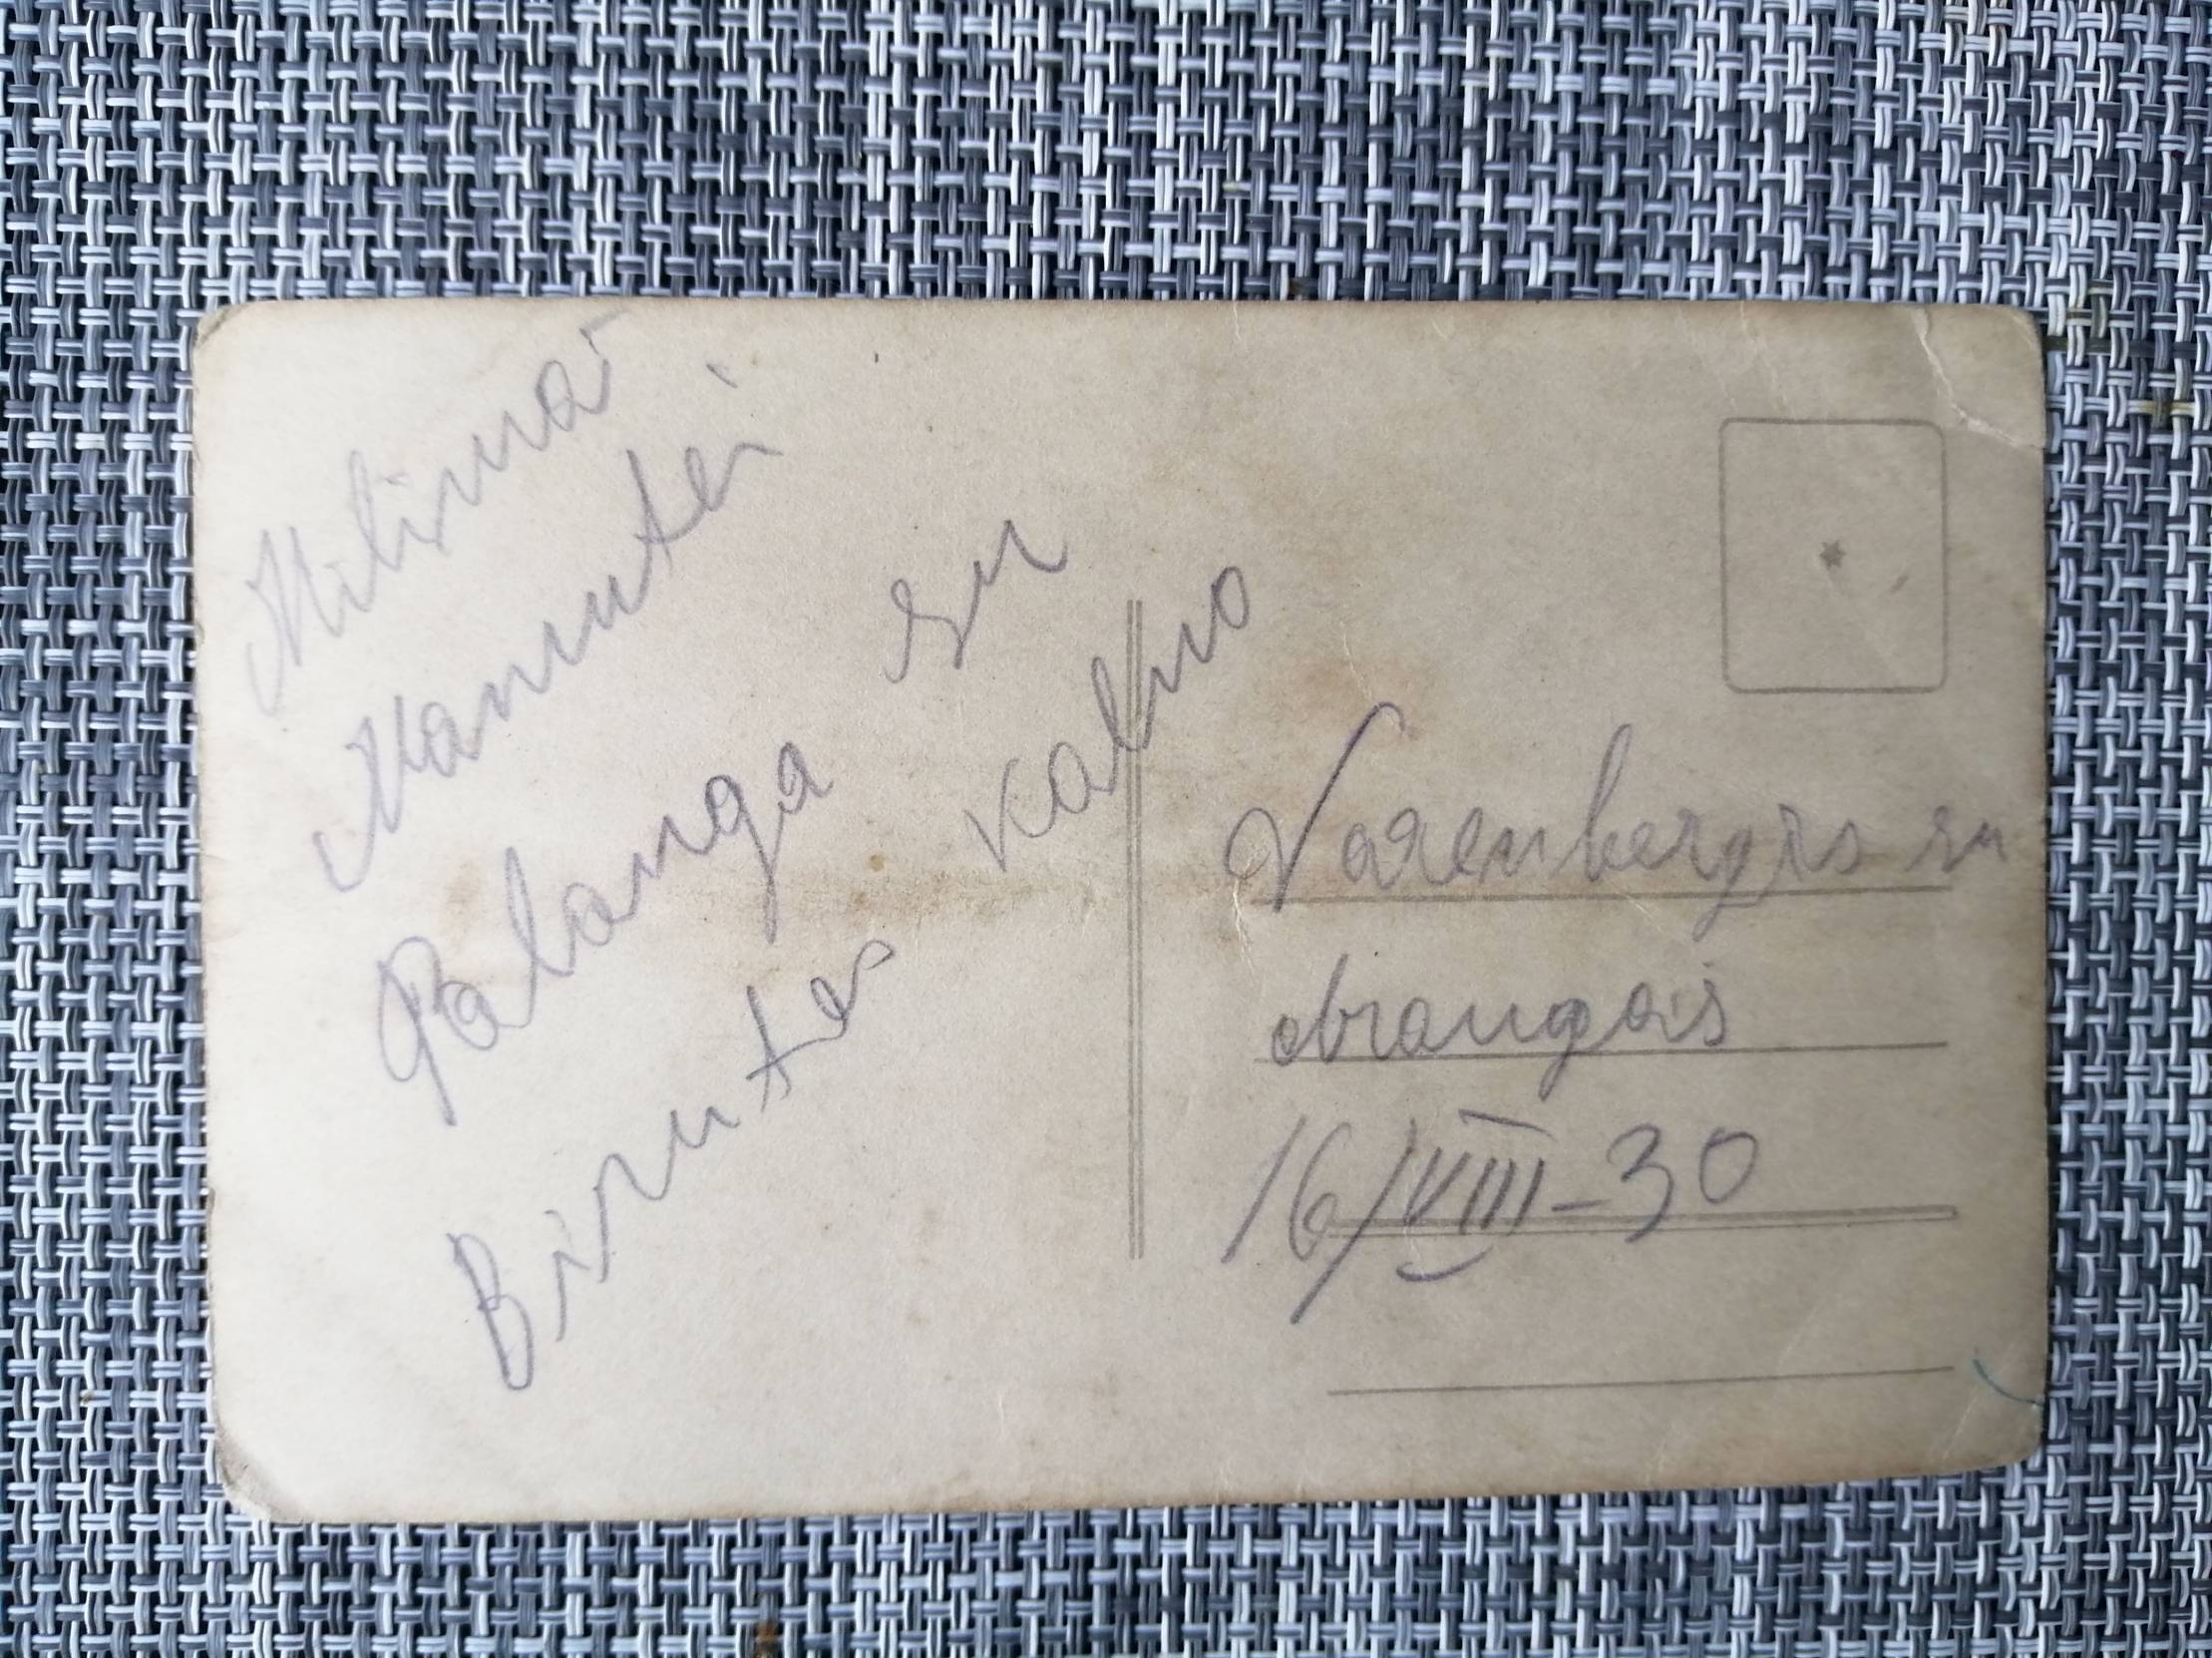 Mamutei
Palanga su
Birutes kalno
Varenbergis su
draugais
16/VIII-30